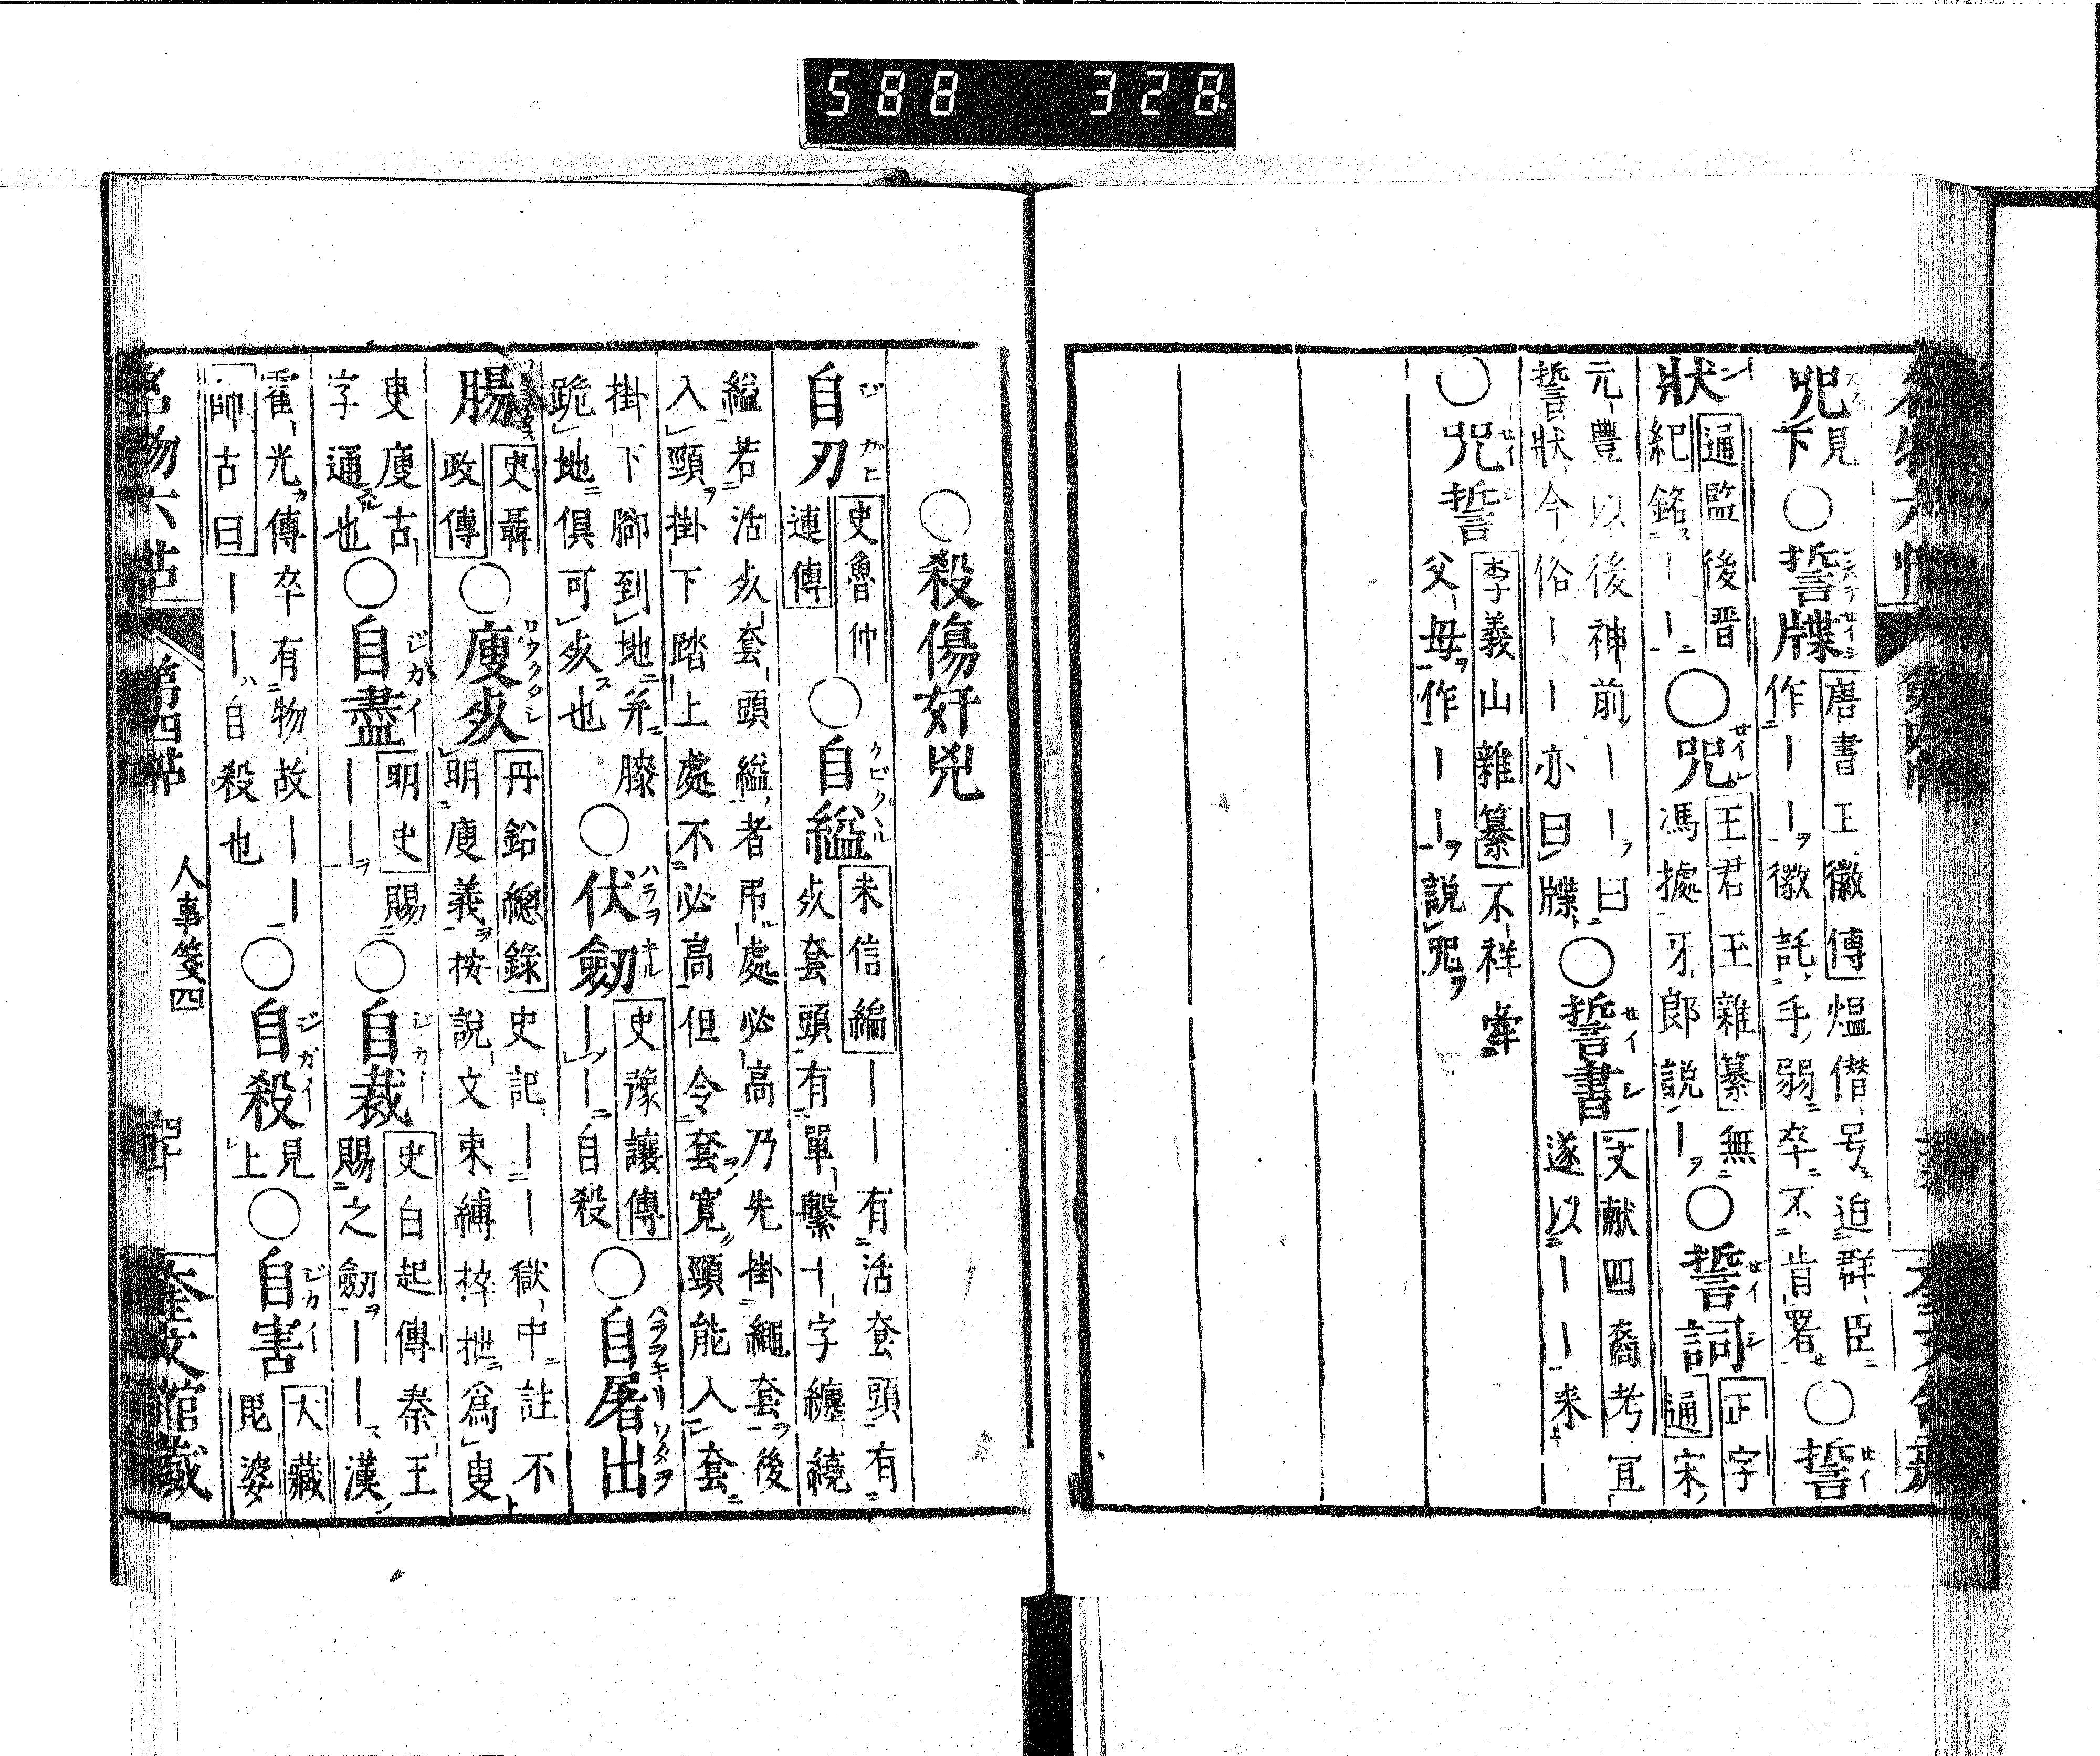 588 328
咒見下○誓牒唐書王徽傳熅僭号迫群臣作ーー徽託手弱卒不肯署○誓
狀通監後晋紀銘ーー○咒王君玉雜纂無馮據牙郎說ー○誓詞正字通宋
元豐以後神前ーー曰誓狀今俗ーー亦曰牒○誓書文献四裔考宜遂以ーー来
○咒誓李義山雜纂不祥牽父母作ーー說咒
○殺傷奸兇
自刃史魯仲連傳○自縊未信編ーー有活套頭有死套頭有單繫十字纏繞
縊若活死套頭縊者吊處必高乃先掛繩套後入頸掛下踏上處不必高但令套寬頸能入套
掛下腳到地并膝跪地俱可死也○伏劒史豫讓傳ーー自殺○自屠出
腸史聶政傳○廋死丹鉛總錄史記ーー獄中註不明廋義按說文束縛捽抴為臾
臾廋古字通也○自盡明史賜ーー○自裁史白起傳秦王賜之劒ーー漢
霍光傳卒有物故ーー師古曰ーー自殺也○自殺見上○自害大藏毘婆
名物六帖 第四帖 人事箋四 奎文館藏